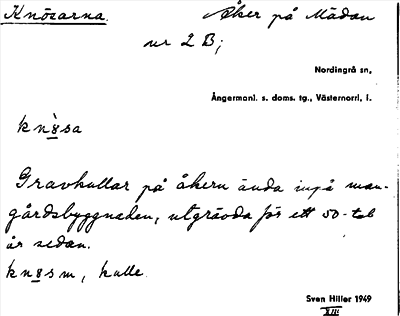 Knösarna. Åker på Mädan
nr 2 B;
Nordingrå sn,
Ångermanl. s. doms. tg., Västernorrl, l.
knösa
Gravkullar på åkern ända inpå man-
gårdsbyggnaden, utgrävda för ett 50-tal
år sedan.
knösm, kulle.
Sven Hiller 1949
XII